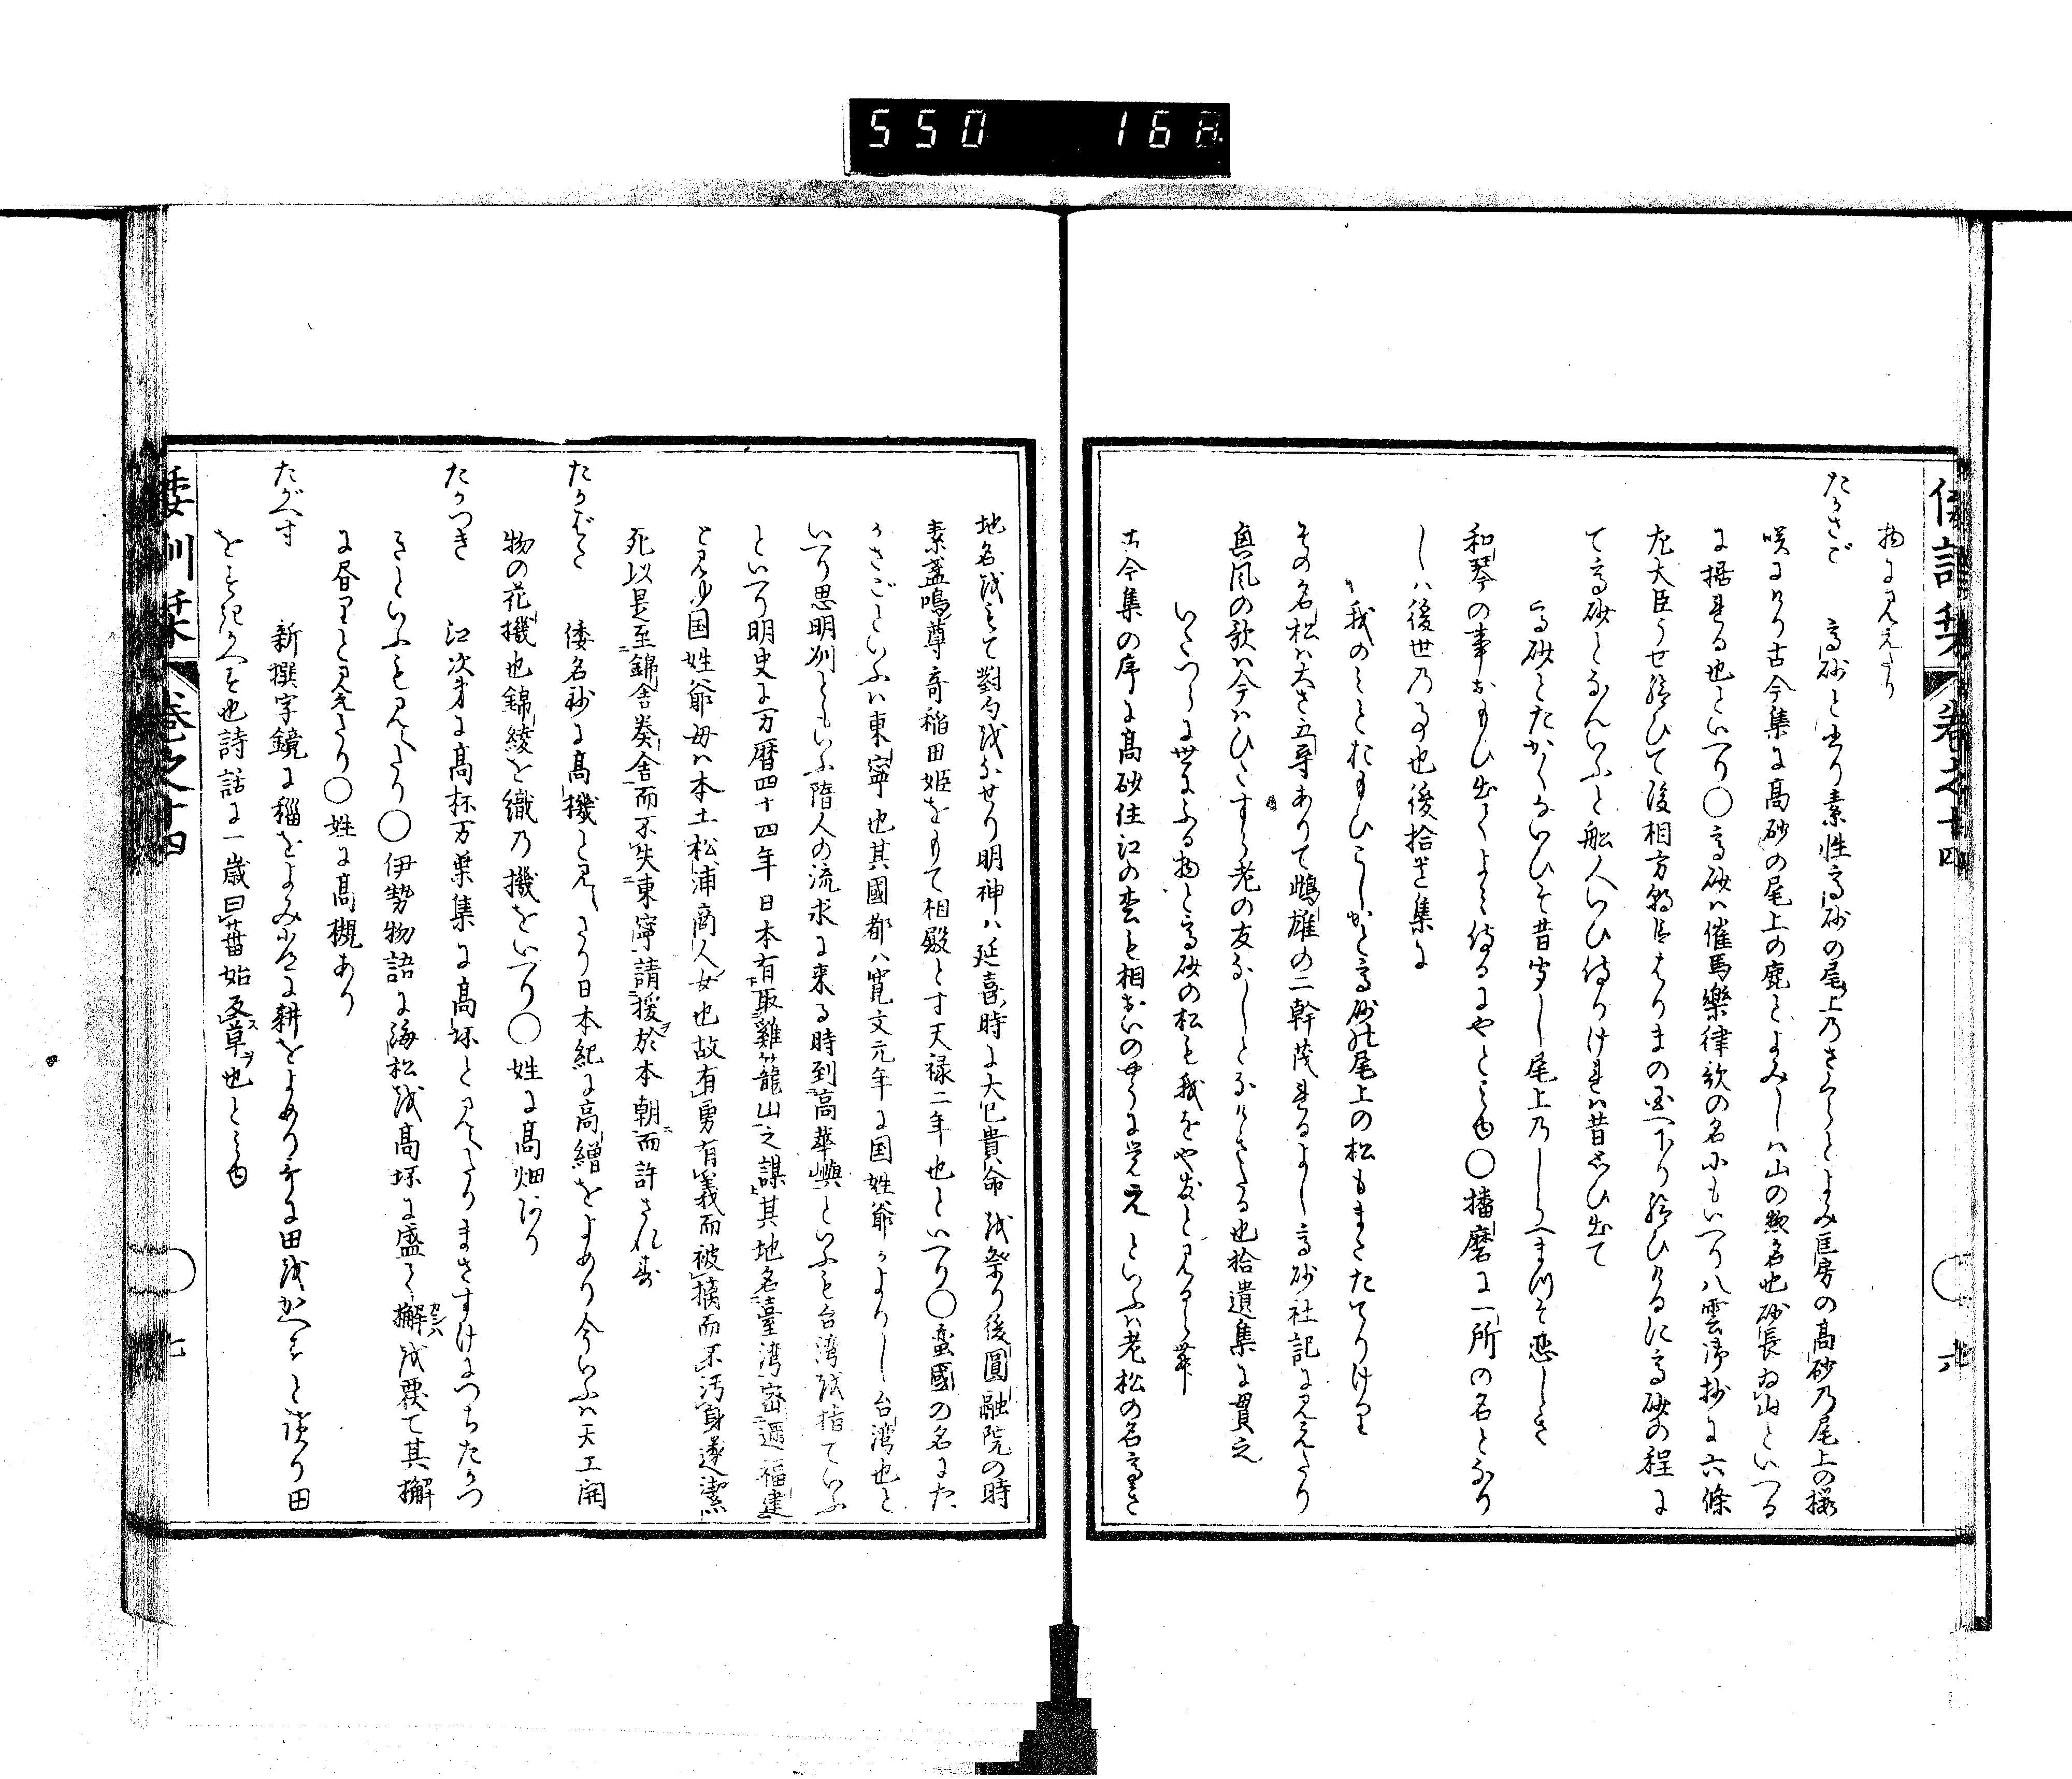 550 168
倭訓栞 卷之十四 ○ 六
物にみえたり
たかさご 高砂と書り素性高砂の尾上のさくらとよみ匡房の高砂の尾上の櫻
咲にけり古今集に高砂の尾上の鹿とよみしハ山の惣名也砂長ゐ山といへる
に据れる也といへり○高砂ハ催馬樂律歌の名にもいへり八雲御抄に六條
左大臣うせ給ひて後相方朝臣はりまの国へ下り給ひけるに高砂の程に
て高砂となんいふと船人いひ侍りけれハ昔思ひ出て
高砂とたかくないひそ昔聞し尾上のしらへまつそ恋しき
和琴の事おもひ出てよミ侍るにやとミゆ○播磨に一所の名となり
しハ後世の事也後拾遺集に
我のミとおもひこしかと高砂の尾上の松もまたたてりけり
その名松ハ大さ五尋ありて鴫雄の二幹茂れるよし高砂社記にみえたり
興風の歌ハ今ハひたすら老の友なしとなけきたる也拾遺集に貫之
いたつらに世にふる物と高砂の松も我をや友とみるらむ
古今集の序に高砂住江の松も相おいのやうに覚え といふハ老松の名高き
地名をもて對句をなせり明神ハ延喜時に大已貴命を祭り後圓融院の時
素盞嗚尊奇稲田姫をもて相殿とす天禄二年也といへり○蛮國の名にた
かさごといふハ東寧也其國都ハ寛文元年に国姓爺かよりし台湾也と
いへり思明州ともいふ隋人の流求に来る時到高華嶼といふも台湾を指ていふ
といへり明史に万暦四十四年日本有取雞籠山之謀其地名臺湾密邇福建
とみゆ国姓爺母ハ本土松浦商人女也故有勇有義而被擒而不汚身遂潔
死以是至錦舍奏舍而不失東寧請援於本朝而許されす
たかばた 倭名抄に高機とみえたり日本紀に高繒をよめり今いふハ天工開
物の花機也錦綾を織の機をいへり○姓に高畑あり
たかつき 江次第に高杯万葉集に高坏とみえたりまさすけにつちたかつ
きといふもみえたり○伊勢物語に海松を高坏に盛て檞カシハを覆て其檞
に昼りとみえたり○姓に高槻あり
たがへす 新撰字鏡に穜をよみ少学に耕をよめり歌に田をかへすと讀り田
をうちかへす也詩話に一歳曰葘始反草也とミゆ
倭訓栞 卷之十四 ○ 七